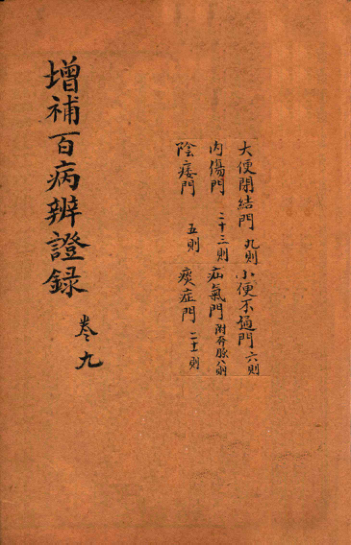 大便閉結門 九則 小便不通門 六則
内傷門 二十三則 疝氣門 附奔豚八則
陰痿門 五則 痰症門 二十一則
增補百病辨證録 卷九